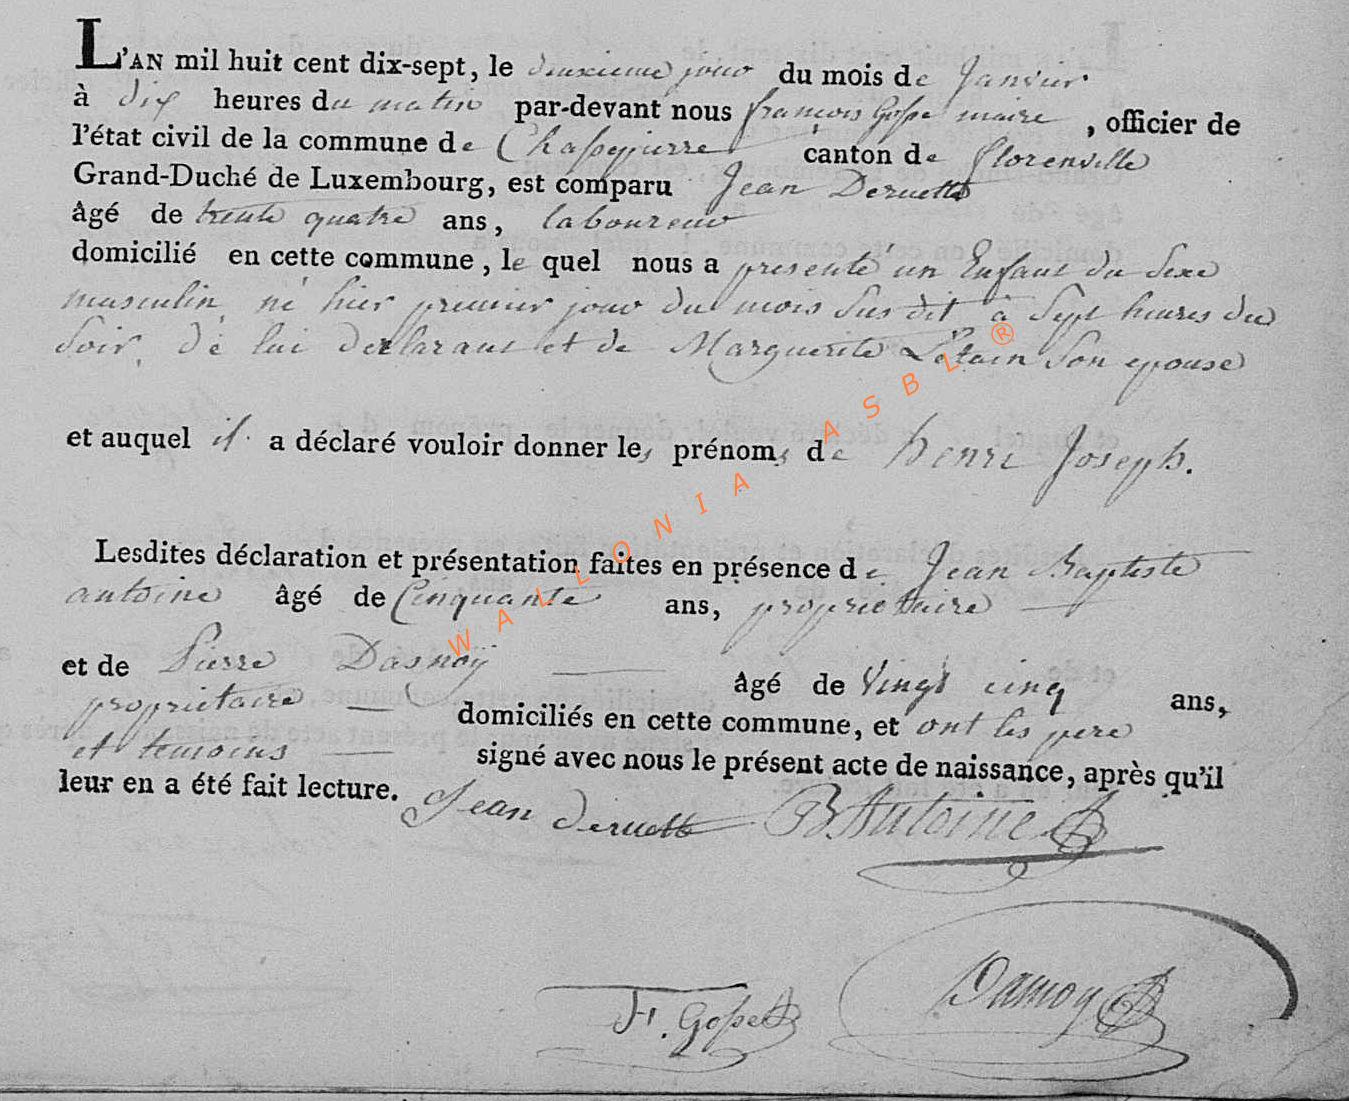 L'AN mil huit cent dix-sept, le deuxieme jour du mois de Janvier
à dix heures du matin par-devant nous françois Gosse maire, officier de
l'état civil de la commune de Chassepierre canton de florenville
Grand-Duché de Luxembourg, est comparu Jean Deruette
âgé de trente quatre ans, laboureur
domicilié en cette commune, le quel nous a présenté un Enfant du Sexe
masculin, né hier premier jour du mois Sus dit à Sept heures du
Soir, de lui declarant et de Marguerite Létain Son epouse
et auquel il a déclaré vouloir donner les prénoms de henri Joseph.
Lesdites déclaration et présentation faites en présence de Jean Baptiste
antoine âgé de Cinquante ans, proprietaire
et de Pierre Dasnoÿ âgé de Vingt cinq ans,
proprietaire domiciliés en cette commune, et ont les pere
et temoins signé avec nous le présent acte de naissance, après qu'il
leur en a été fait lecture. Jean deruette B Antoine
F. Gosse Dasnoy
WALLONIA ASBL ®